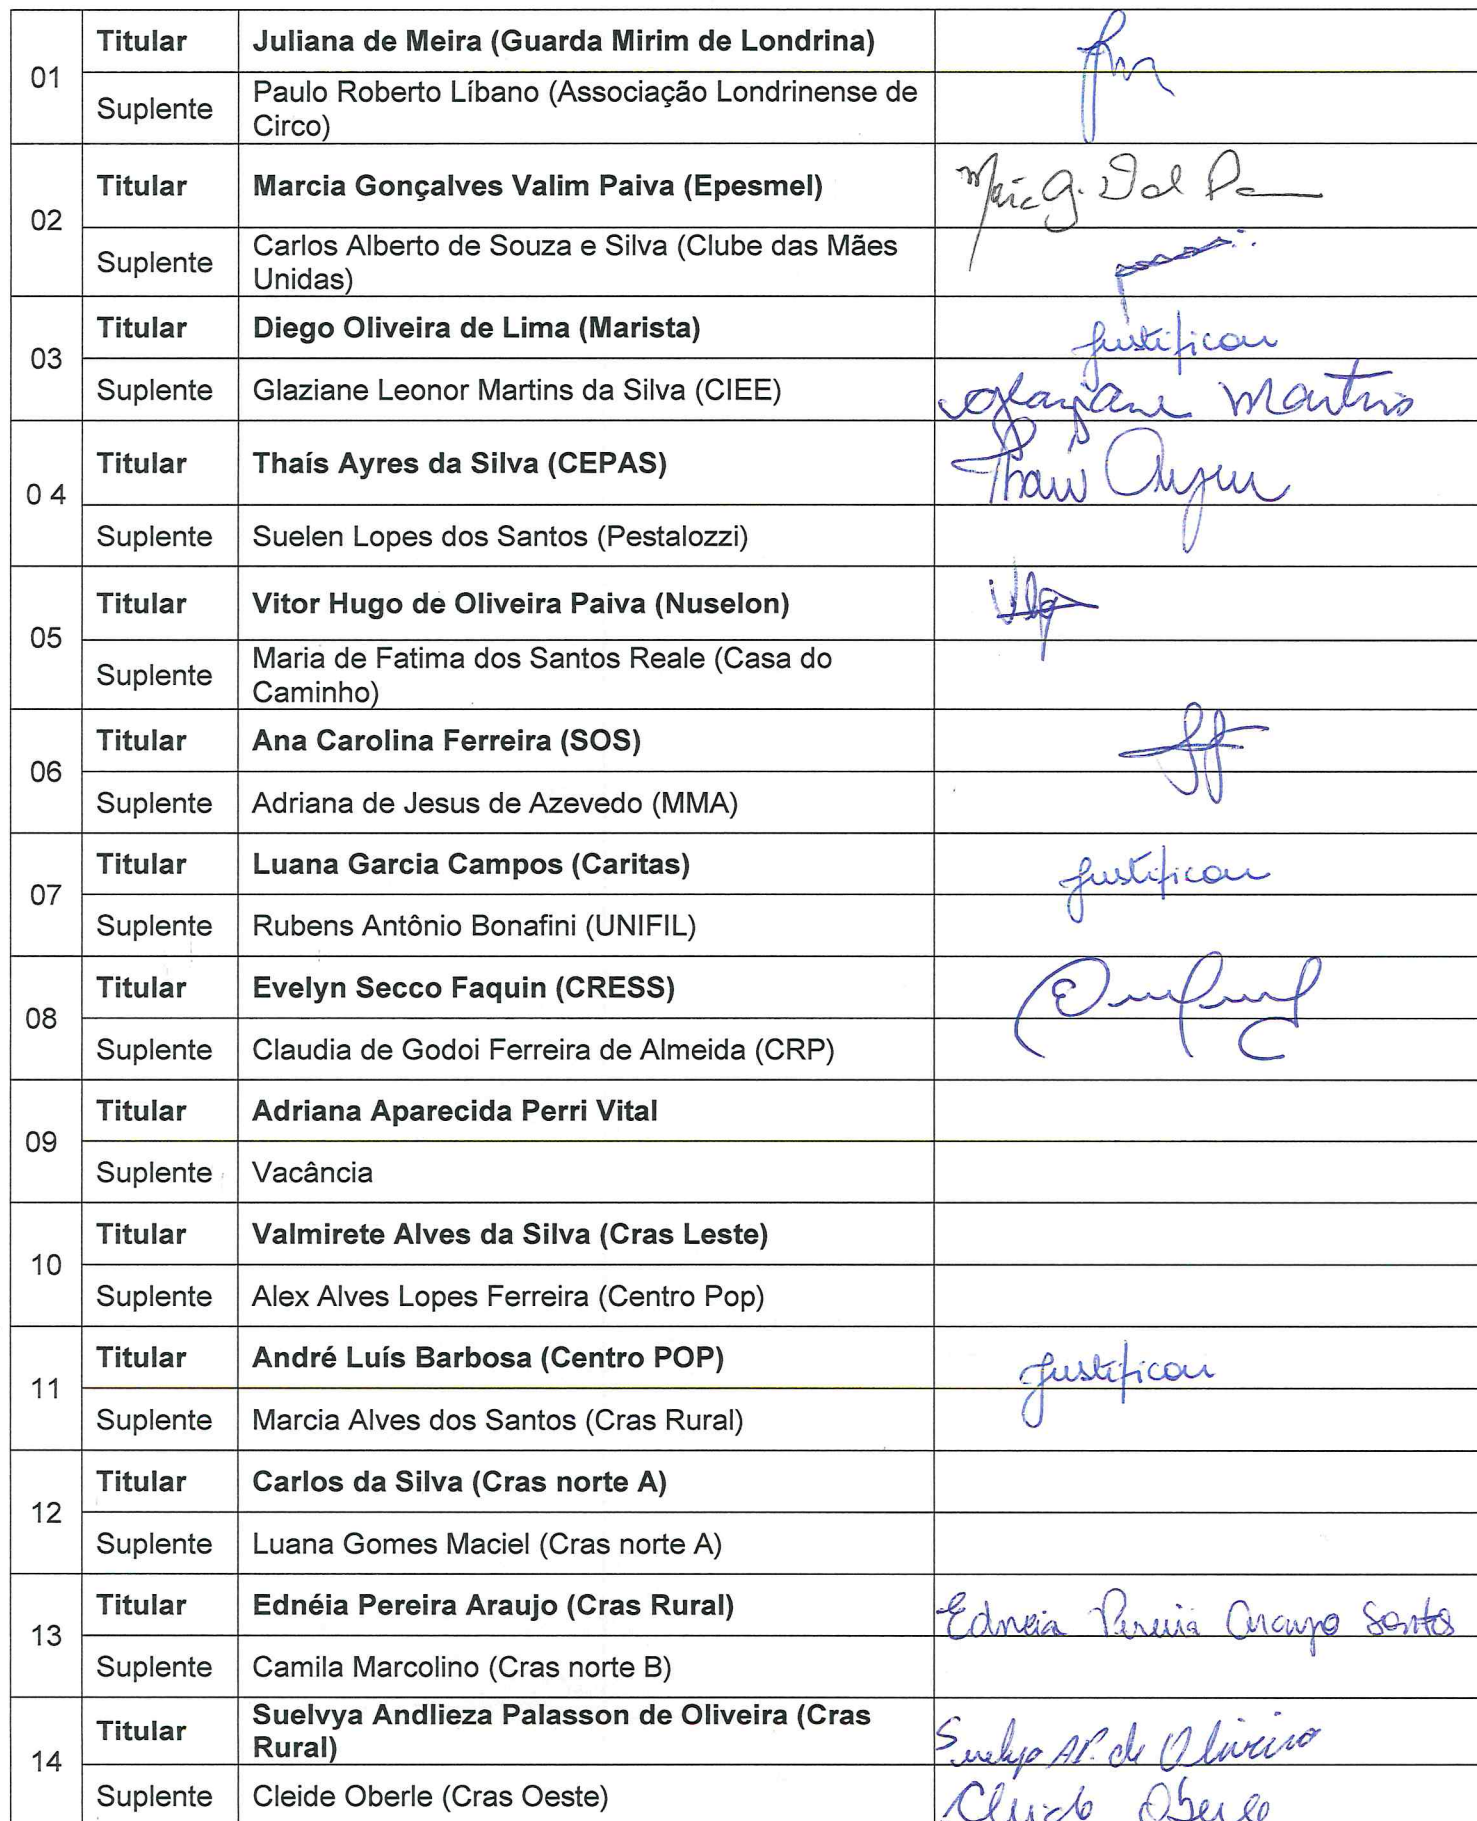 01
Titular Juliana de Meira (Guarda Mirim de Londrina)
Suplente Paulo Roberto Líbano (Associação Londrinense de
Circo)
02
Titular Marcia Gonçalves Valim Paiva (Epesmel)
Suplente Carlos Alberto de Souza e Silva (Clube das Mães
Unidas)
03
Titular Diego Oliveira de Lima (Marista) Justificou
Suplente Glaziane Leonor Martins da Silva (CIEE) Glaziane Martins
0 4
Titular Thaís Ayres da Silva (CEPAS)
Suplente Suelen Lopes dos Santos (Pestalozzi)
05
Titular Vitor Hugo de Oliveira Paiva (Nuselon)
Suplente Maria de Fatima dos Santos Reale (Casa do
Caminho)
06
Titular Ana Carolina Ferreira (SOS)
Suplente Adriana de Jesus de Azevedo (MMA)
07
Titular Luana Garcia Campos (Caritas) Justificou
Suplente Rubens Antônio Bonafini (UNIFIL)
08
Titular Evelyn Secco Faquin (CRESS)
Suplente Claudia de Godoi Ferreira de Almeida (CRP)
09
Titular Adriana Aparecida Perri Vital
Suplente Vacância
10
Titular Valmirete Alves da Silva (Cras Leste)
Suplente Alex Alves Lopes Ferreira (Centro Pop)
11
Titular André Luís Barbosa (Centro POP) Justificou
Suplente Marcia Alves dos Santos (Cras Rural)
12
Titular Carlos da Silva (Cras norte A)
Suplente Luana Gomes Maciel (Cras norte A)
13
Titular Ednéia Pereira Araujo (Cras Rural) Edneia Pereira Araujo Santos
Suplente Camila Marcolino (Cras norte B)
14
Titular Suelvya Andlieza Palasson de Oliveira (Cras
Rural) de Oliveira
Suplente Cleide Oberle (Cras Oeste) Cleide Oberle